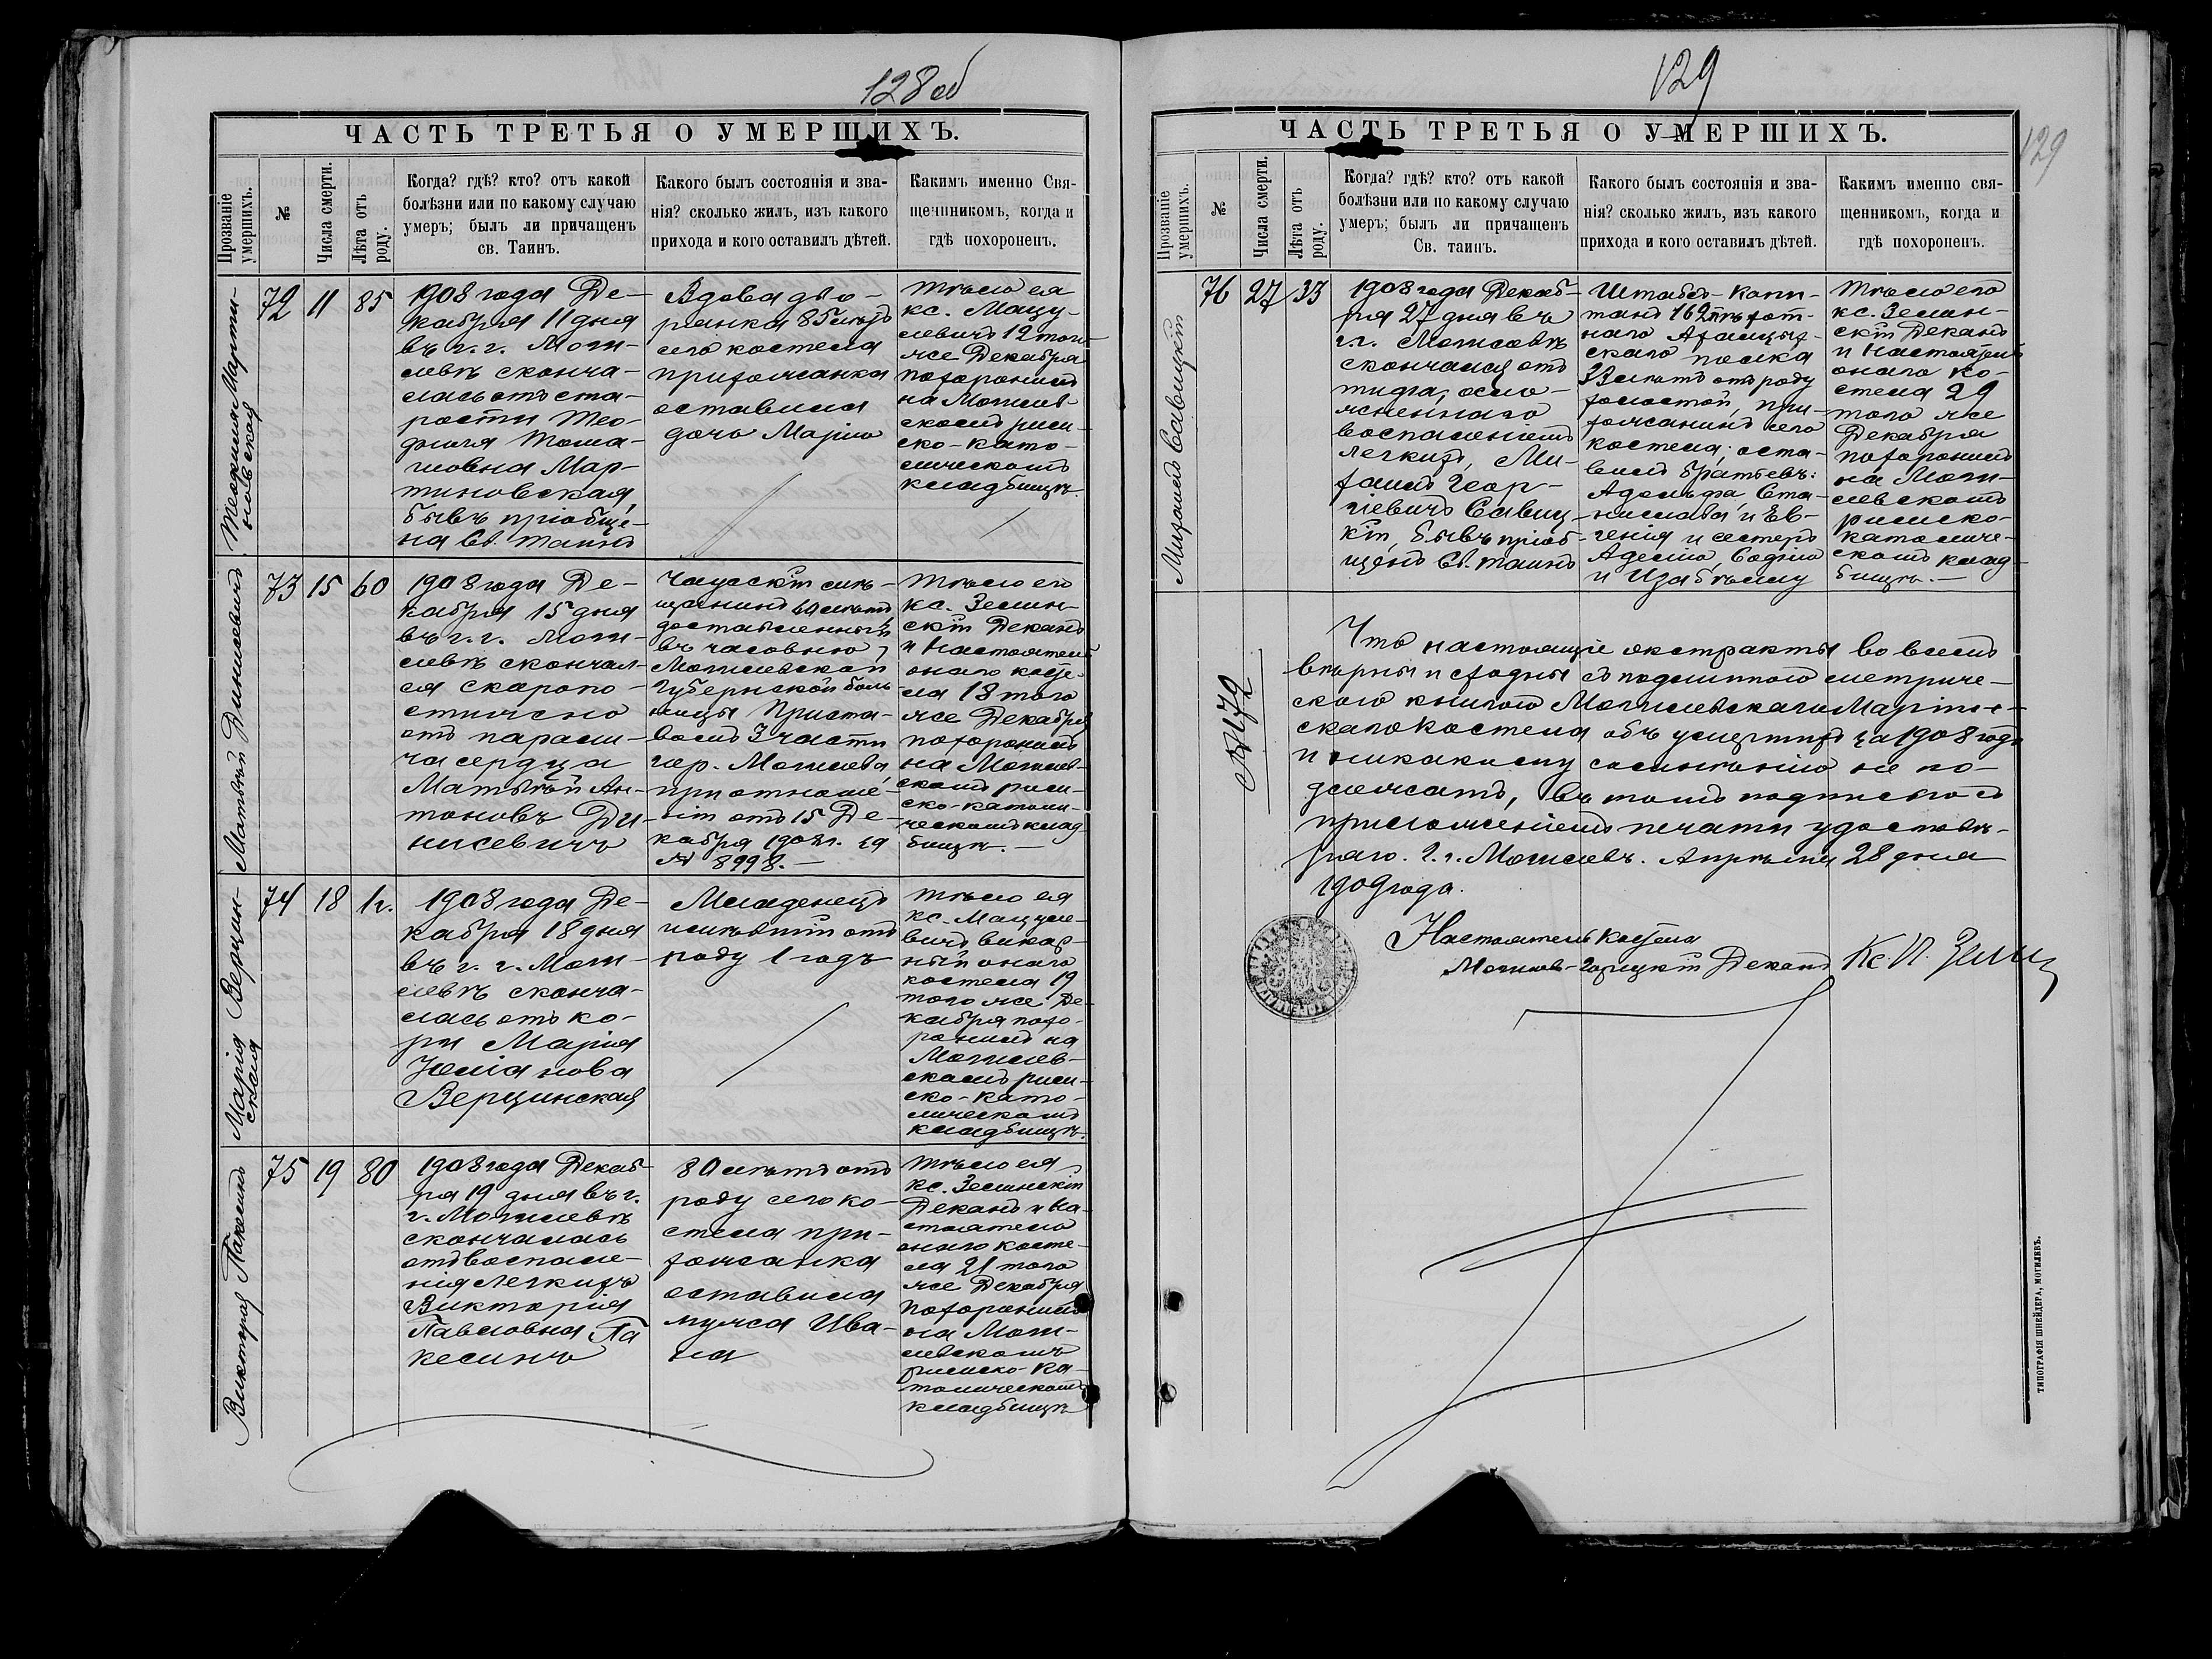 128 об
ЧАСТЬ ТРЕТЬЯ О УМЕРШИХЪ.
Прозваніе умершихъ.
№
Числа смерти.
Лѣта отъ роду.
Когда? гдѣ? кто? отъ какой
болѣзни или по какому случаю
умеръ; былъ ли причащенъ
св. Таинъ.
Какого былъ состоянія и зва-
нія? сколько жилъ, изъ какого
прихода и кого оставилъ дѣтей.
Какимъ именно Свя-
щенникомъ, когда и
гдѣ похороненъ.
Теофилія Марти-
новская
72
11
85
1908 года Де-
кабря 11 дня
въ г. г. Моги-
левѣ сконча-
лась отъ ста-
рости Тео-
филія Тома-
шовна Мар-
тиновская,
бывъ пріобще-
на Св. Таинъ
Вдова дво-
рянка 85 лѣтъ
сего костела
прихожанка
оставила
дочь Марію
Тѣло ея
кс. Мацу-
левичъ 12 того
же Декабря
похоронилъ
на Могилев-
скомъ рим-
ско-като-
лическомъ
кладбищѣ.
Матвѣй Динисевичъ
73
15
60
1908 года Де-
кабря 15 дня
въ г. г. Моги-
левѣ скончал-
ся скоропо-
стижно
отъ парали-
ча сердца
Матвѣй Ан-
тоновъ Ди-
нисевичъ
Чаусскій мѣ-
щанинъ 60 лѣтъ
доставленный
въ часовню
Могилевской
Губернской боль
ницы Приста-
вомъ 3 части
гор. Могилева,
при отноше-
ніи отъ 15 Де-
кабря 1908 г. за
№ 8998.
Тѣло его
кс. Зелин-
скій Деканъ
и Настоятель
онаго косте-
ла 18 того
же Декабря
похоронилъ
на Могилев-
скомъ рим-
ско-католи-
ческомъ клад
бищѣ.
Марія Верцин-
ская
74
18
1 г.
1908 года Де-
кабря 18 дня
въ г. г. Моги-
левѣ сконча-
лась отъ ко-
ри Марія
Юліанова
Верцинская
Младенецъ
имѣвшій отъ
роду 1 годъ
Тѣло ея
кс. Мацуле-
вичъ викар-
ный онаго
костела 19
того же Де-
кабря похо-
ронилъ на
Могилев-
скомъ рим-
ско-като-
лическомъ
кладбищѣ.
Викторія Пакелинъ
75
19
80
1908 года Декаб-
ря 19 дня въ г.
г. Могилевѣ
скончалась
отъ воспале-
нія легкихъ
Викторія
Павловна Па
келинъ
80 лѣтъ отъ
роду сего ко-
стела при-
хожанка
оставила
мужа Ива-
на
Тѣло ея
кс. Зелинскій
Деканъ и На-
стоятель
онаго косте-
ла 21 того
же Декабря
похоронилъ
на Моги-
левскомъ
римско-ка-
толическомъ
кладбищѣ
129
129
ЧАСТЬ ТРЕТЬЯ О УМЕРШИХЪ.
Прозваніе умершихъ.
№
Числа смерти.
Лѣта отъ роду.
Когда? гдѣ? кто? отъ какой
болѣзни или по какому случаю
умеръ; былъ ли причащенъ
Св. таинъ.
Какого былъ состоянія и зва-
нія? сколько жилъ, изъ какого
прихода и кого оставилъ дѣтей.
Какимъ именно свя-
щенникомъ, когда и
гдѣ похороненъ.
Михаилъ Савицкій
76
27
33
1908 года Декаб-
ря 27 дня въ
г.г. Могилевѣ
скончался отъ
тифа, осло-
жненнаго
воспаленіемъ
легкихъ, Ми-
хаилъ Геор-
гіевичъ Савиц-
кій, бывъ пріоб-
щенъ Св. Таинъ
Штабсъ-Капи-
танъ 162 пѣхот-
наго Ахалцых-
скаго полка
33 лѣтъ отъ роду
холостой, при-
хожанинъ сего
костела; оста-
вилъ братьевъ:
Адольфа, Ста-
нислава и Ев-
генія и сестеръ
Аделію, Софію
и Изабеллу
Тѣло его
кс. Зелин-
скій Деканъ
и Настоятель
онаго ко-
стела 29
того же
Декабря
похоронилъ
на Моги-
левскомъ
римско-
католиче-
скомъ клад-
бищѣ.
№ 172
Что настоящіе экстракты во всемъ
вѣрны и сходны съ подлинною метриче-
скою книгою Могилевскаго Маріин-
скаго Костела объ умершихъ за 1908 годъ
и никакому сомнѣнію не по-
длежатъ, въ томъ подписью съ
приложеніемъ печати удостовѣ-
ряю. Г. г. Могилевъ. Апрѣля 28 дня
1909 года.
Настоятель Костела
Могилев-Горецкій Деканъ Кс. И.
ТИПОГРАФІЯ ШНЕЙДЕРА, МОГИЛЕВЪ.